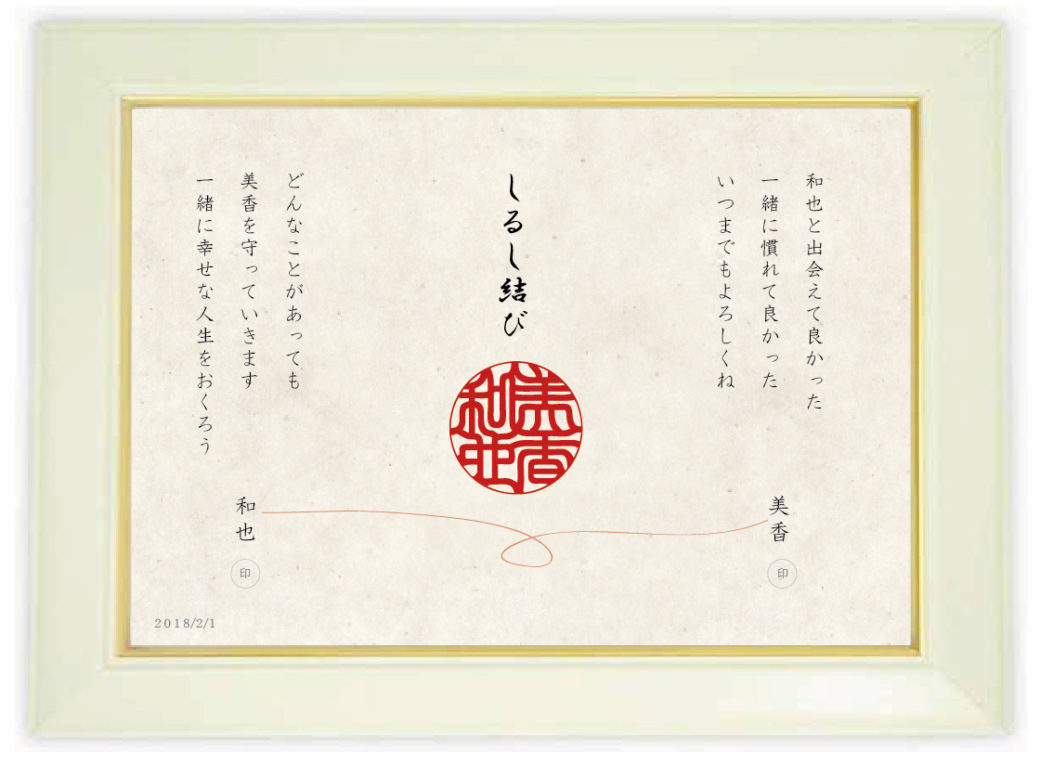 和也と出会えて良かった
一緒に慣れて良かった
いつまでもよろしくね
美香
印
しるし結び
美香
和也
どんなことがあっても
美香を守っていきます
一緒に幸せな人生をおくろう
和也
印
2018/2/1